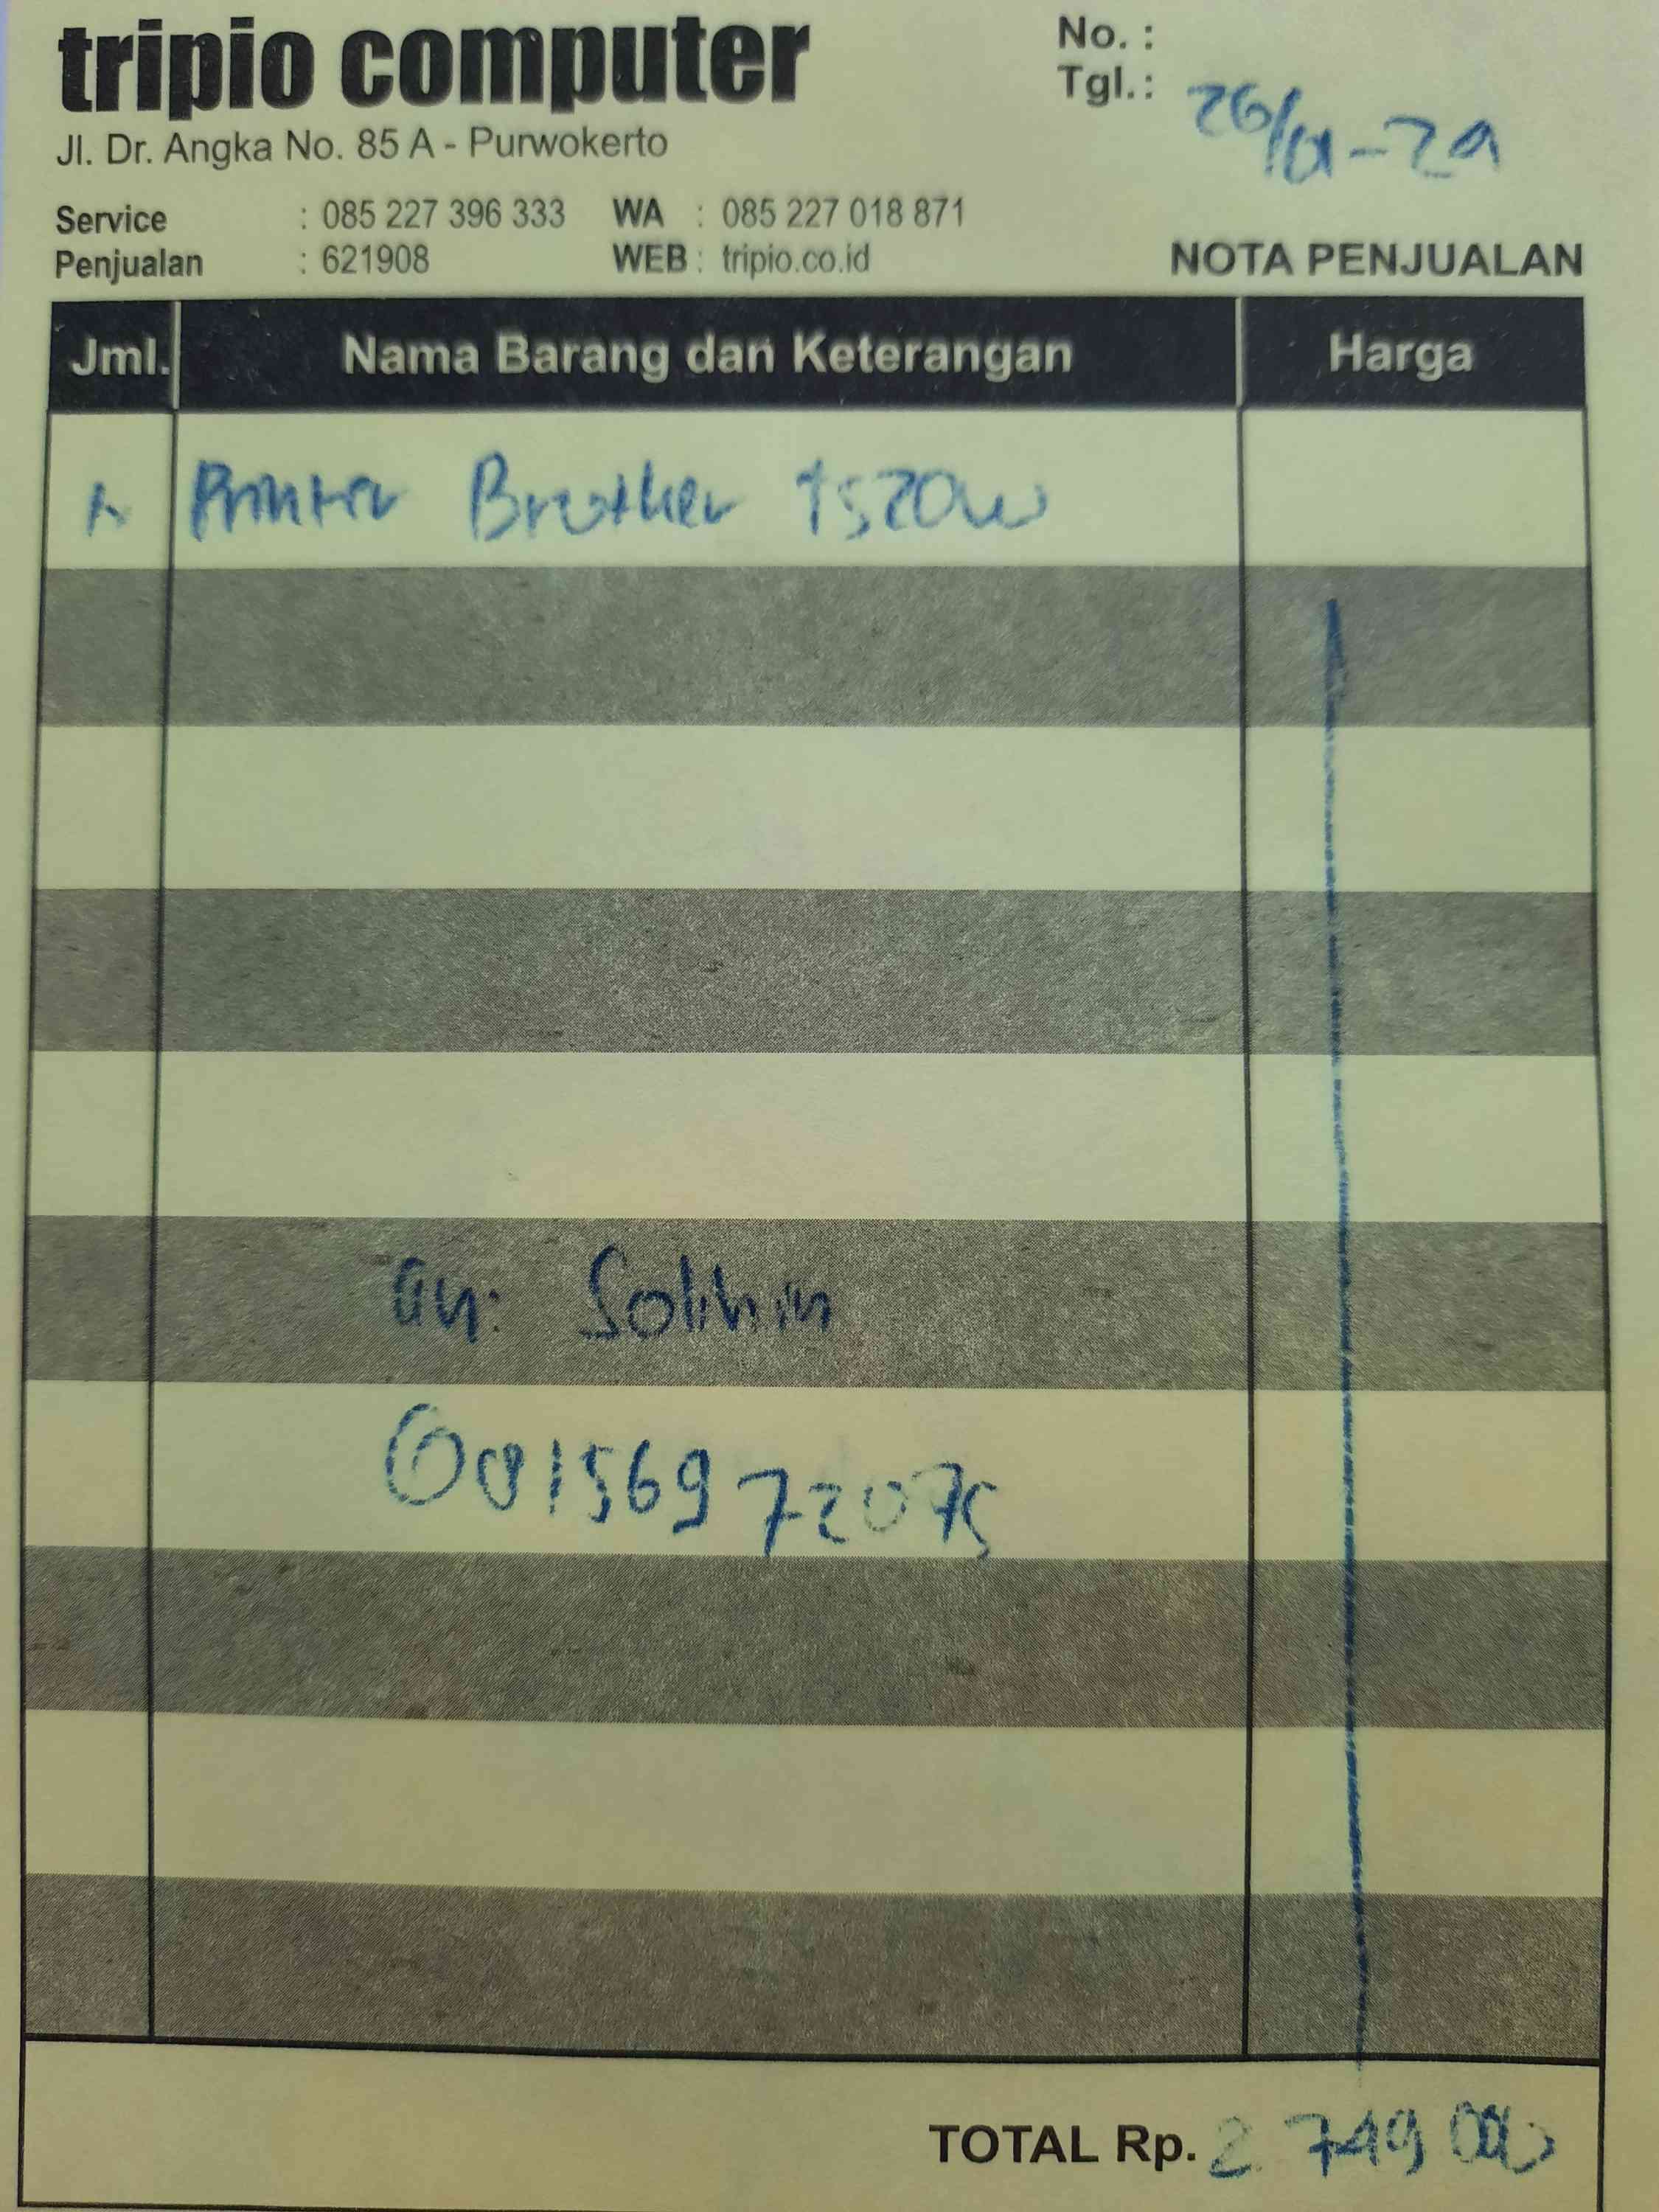 tripio computer
No. :
Tgl. :
Jl. Dr. Angka No. 85 A - Purwokerto
Service : 085 227 396 333 WA : 085 227 018 871
Penjualan : 621908 WEB : tripio.co.id
NOTA PENJUALAN
Jml. Nama Barang dan Keterangan Harga
1 Printer Brother T520W
an. Solihin
08156972075
TOTAL Rp. 2 749 000